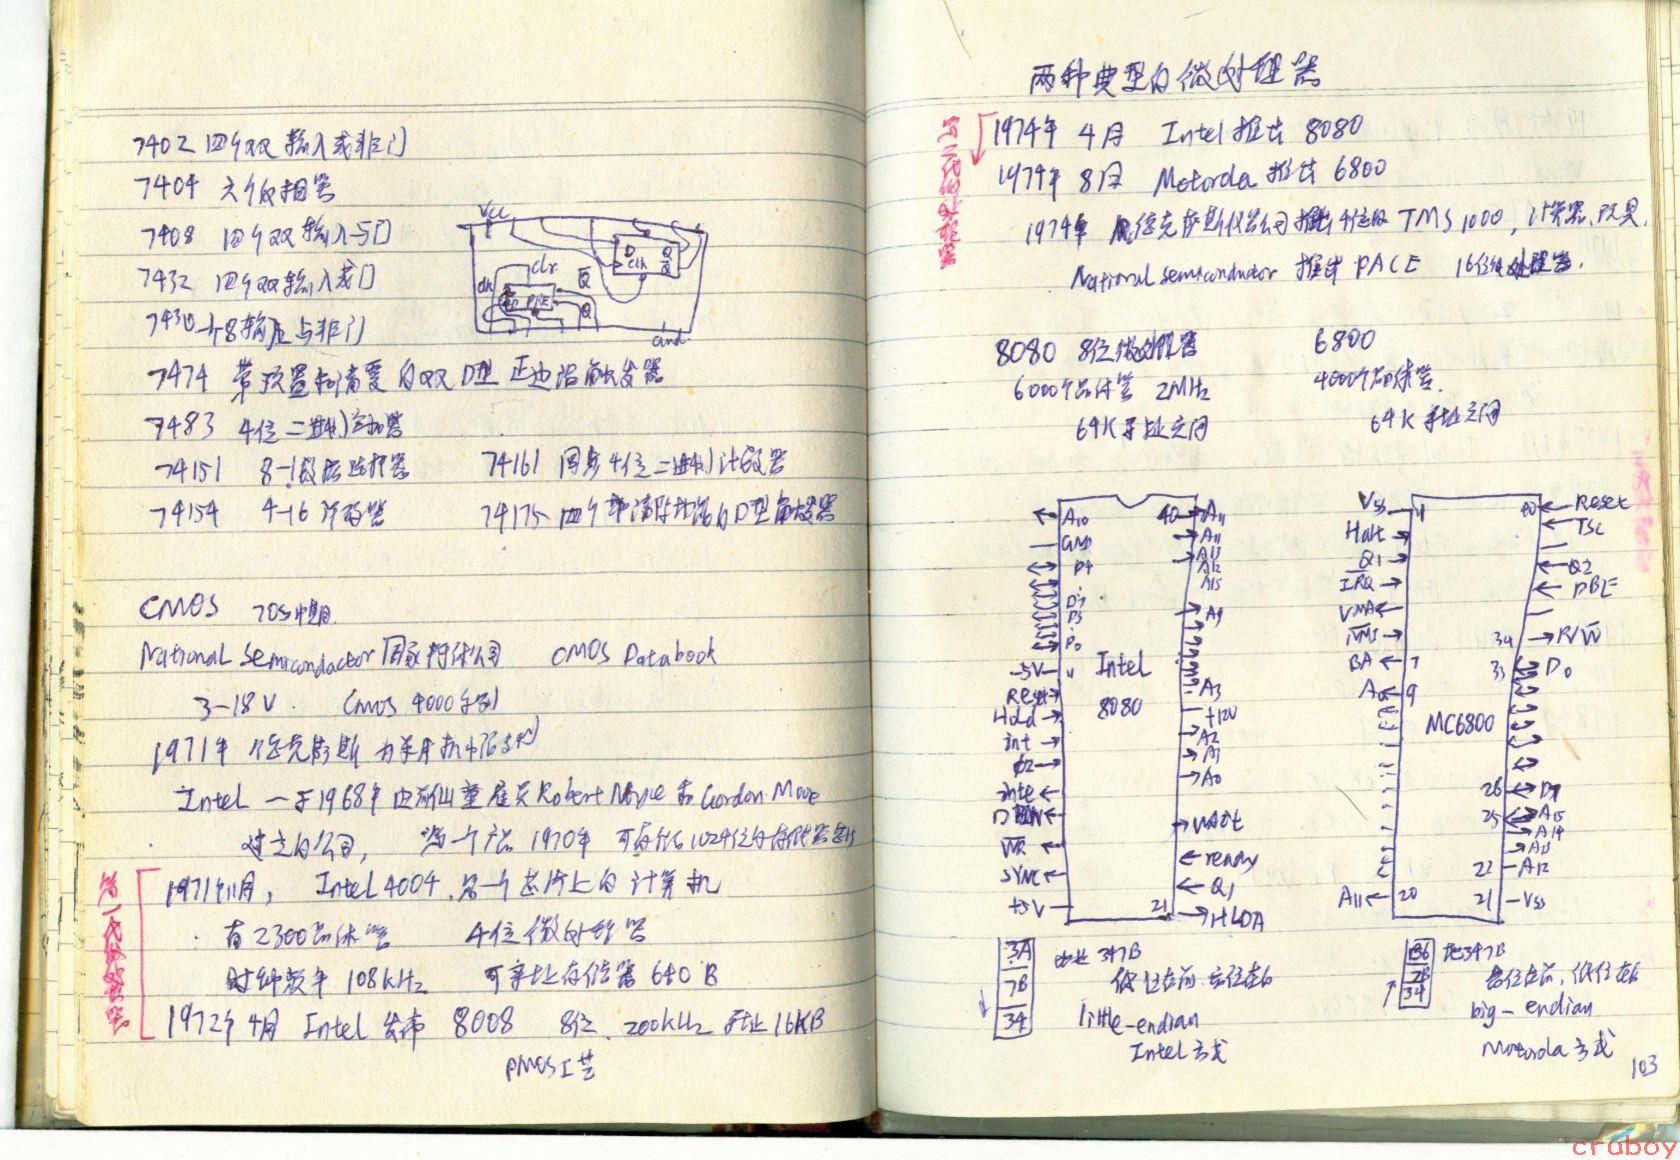 7402 四个双输入或非门
7404 六个反相器
7408 四个双输入与门
7432 四个双输入或门
7430 一个8输入与非门
Vcc
D Q
Clk Q̅
clr
clk
Q̅
D PRE
Q
Gnd
7474 带预置和清零的双D型正边沿触发器
7483 4位二进制加器
74151 8-1数据选择器 74161 同步4位二进制计数器
74154 4-16译码器 74175 四个带清除的D型触发器
CMOS 70S中期
National Semiconductor 国家半导体公司 CMOS Databook
3-18V. CMOS 4000系列
1971年 德克萨斯
Intel 一于1968年由 雇员 Robert Noyce 和 Gordon Moore
建立的公司, 第一个产品 1970年 可存储1024位的存储器芯片
第一代微处理器
1971年11月, Intel 4004, 第一个芯片上的计算机
有2300晶体管 4位微处理器
时钟频率 108kHz 可寻址存储器 640B
1972年4月 Intel 发布 8008 8位. 200kHz 寻址16KB
PMOS工艺
两种典型的微处理器
第二代微处理器
1974年 4月 Intel 推出 8080
1974年 8月 Motorola 推出 6800
1974年 德克萨斯仪器公司推出4位的 TMS 1000, 计算器、玩具.
National semiconductor 推出 PACE 16位微处理器.
8080 8位微处理器 6800
6000个晶体管 2MHz 4000个晶体管.
64K寻址空间 64K寻址空间
A10 40 A11
GND
D4
D7
D3
D0
-5V 11
Reset
Hold
int
φ2
inte
DBIN
WR̅
SYNC
+5V
Intel
8080
A15
A9
A3
+12V
A2
A1
A0
wait
ready
Q1
21 HLDA
Vss 1 40 Reset
Halt TSC
Q1 Q2
IRQ̅ DBE
VMA
NMI̅ 34 R/W̅
BA 7 33 D0
A0 9
MC6800
26 D7
25 A15
A14
A13
22 A12
A11 20 21 Vss
3A 地址 347B
7B 低位在前 高位在后
34 little-endian
Intel方式
36 地347B
7B 高位在前, 低位在后
34 big-endian
Motorola 方式
103
cruboy